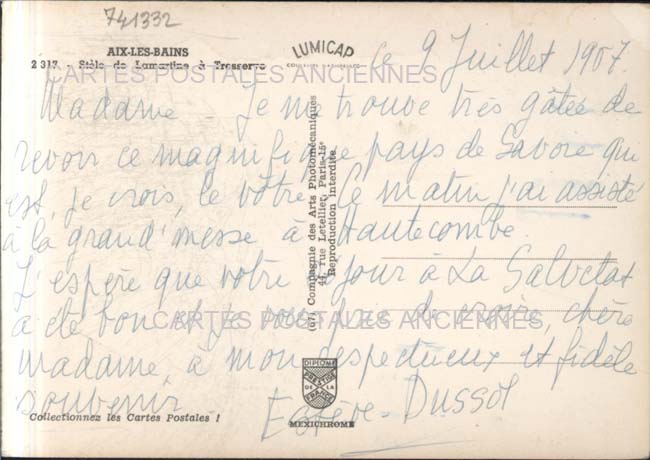 741332
AIX-LES-BAINS
2 317 - Stèle de Lamartine à Tresserve
LUMICAP
CARTES POSTALES ANCIENNES
Ce 9 Juillet 1967.
Madame - Je me trouve très gâtée de
revoir ce magnifique pays de Savoie qui
est, je crois, le vôtre. Ce matin j'ai assisté
à la grand'messe à Hautecombe.
J'espère que votre séjour à La Salvetat
a été bon et je vous prie de croire, chère
madame, à mon respectueux et fidèle
souvenir.
Estève-Dussol
CARTES POSTALES ANCIENNES
(67) Compagnie des Arts Photomécaniques
44, rue Letellier, Paris-15e
Reproduction Interdite
DIPLOME
PRESTIGE
DE LA
FRANCE
MEXICHROME
Collectionnez les Cartes Postales !